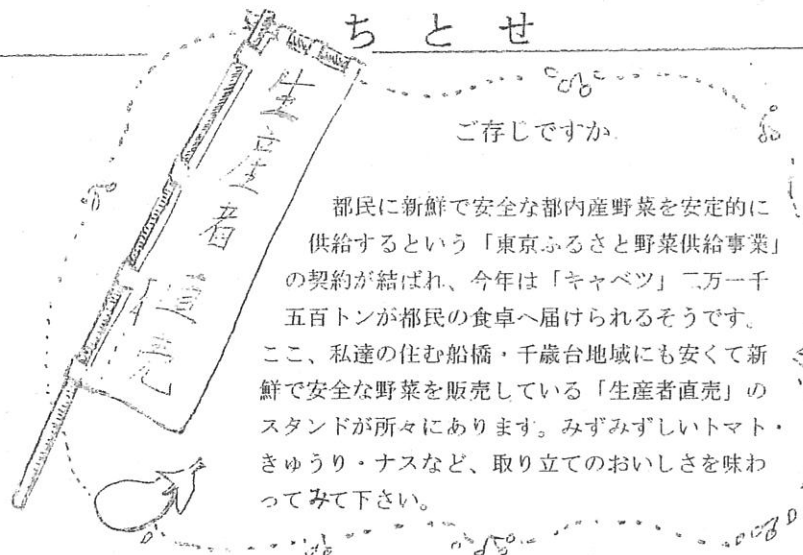 ちとせ
生産者直売
ご存じですか
都民に新鮮で安全な都内産野菜を安定的に
供給するという「東京ふるさと野菜供給事業」
の契約が結ばれ、今年は「キャベツ」二万一千
五百トンが都民の食卓へ届けられるそうです。
ここ、私達の住む船橋・千歳台地域にも安くて新
鮮で安全な野菜を販売している「生産者直売」の
スタンドが所々にあります。みずみずしいトマト・
きゅうり・ナスなど、取り立てのおいしさを味わ
ってみて下さい。